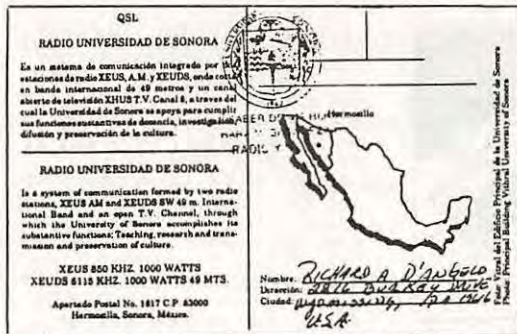 QSL
RADIO UNIVERSIDAD DE SONORA
Es un sistema de comunicación integrado por
estaciones de radio XEUS, A.M. y XEUDS, onda corta
en banda internacional de 49 metros y un canal
abierto de televisión XHUS T.V. Canal 8, a traves del
cual la Universidad de Sonora se apoya para cumplir
sus funciones sustantivas de docencia, investigación,
difusión y preservación de la cultura.
RADIO UNIVERSIDAD DE SONORA
Is a system of communication formed by two radio
stations, XEUS AM and XEUDS SW 49 m. Interna-
tional Band and an open T.V. Channel, through
which the University of Sonora accomplishes its
substantive functions; Teaching, research and trans-
mission and preservation of culture.
XEUS 850 KHZ. 1000 WATTS
XEUDS 6115 KHZ. 1000 WATTS 49 MTS.
Apartado Postal No. 1817 C.P. 83000
Hermosillo, Sonora, México.
Hermosillo
RADIO
Nombre: RICHARD A D'ANGELO
Dirección: 2216 BURKEY DRIVE
Ciudad: WYOMISSING, PA
USA
Foto: Vitral del Edificio Principal de la Universidad de Sonora
Photo: Principal Building Vitral University of Sonora